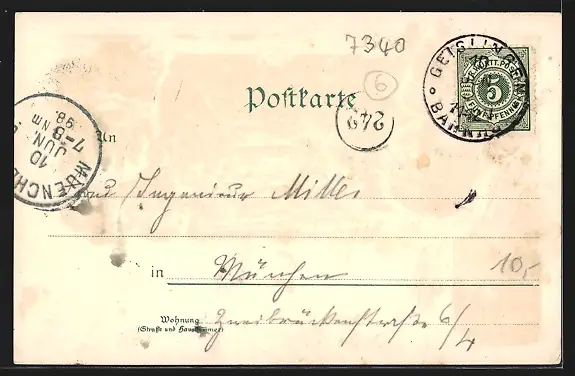 7340
6
Postkarte
249
GEISLINGEN
BAHNHOF
K. WÜRTT. POST
5
FÜNF PFENNIG
MUENCHEN
10
JUN.
98
7-8 Nm
An
Ingenieur Miller
in München
10,-
Wohnung
(Straße und Hausnummer)
Zweibrückenstraße 6/4